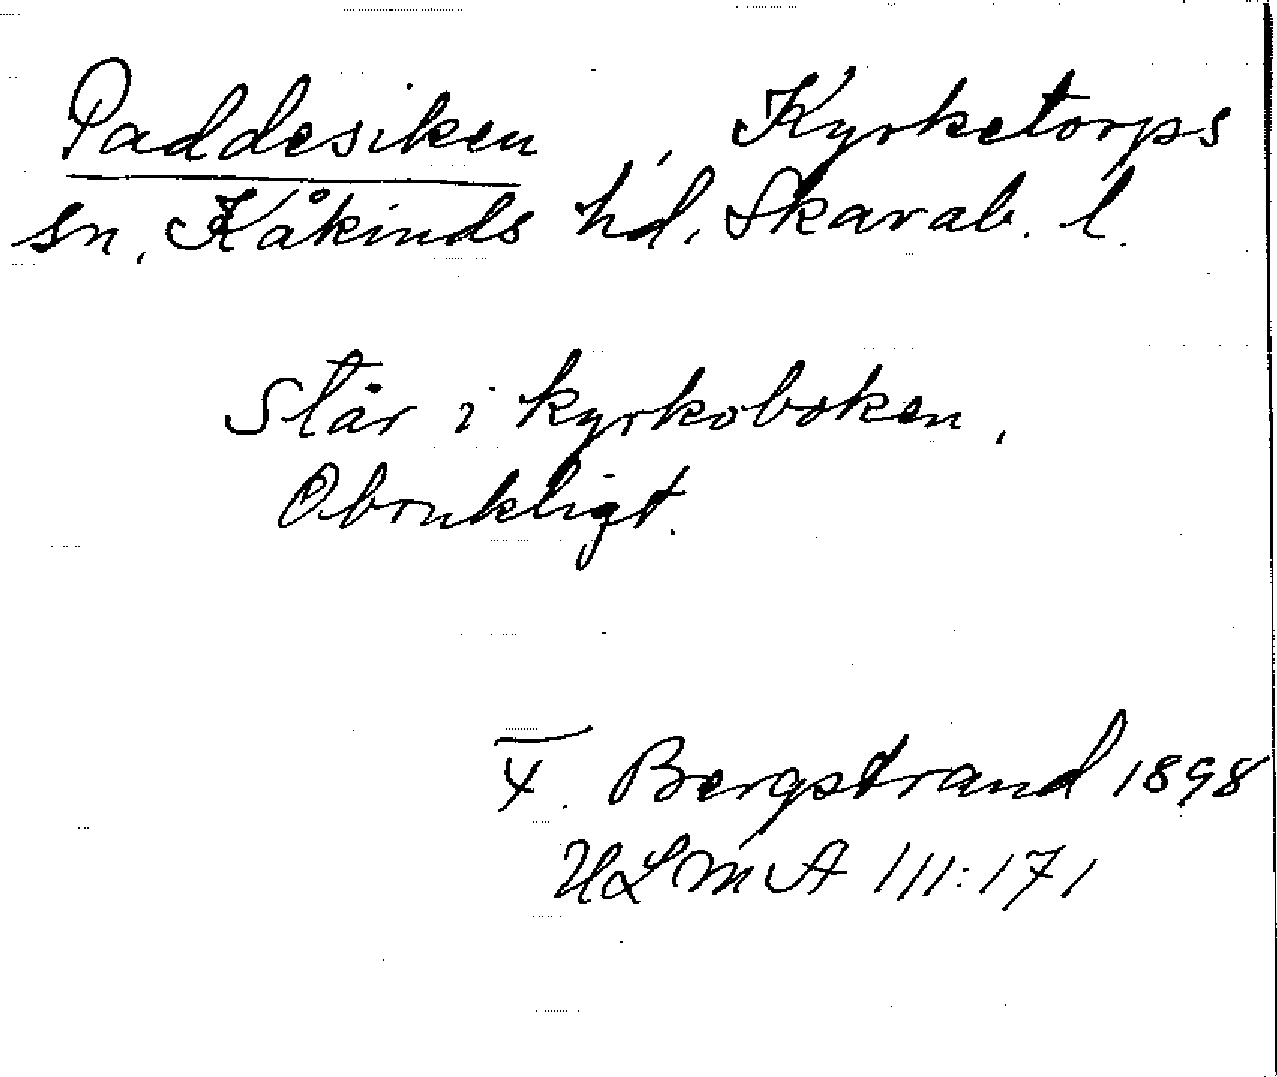 Paddesiken, Kyrketorps
sn, Kåkinds hd, Skarab. l.
Står i kyrkoboken,
Obrukligt.
Bergstrand 1898
ULMA 111:171